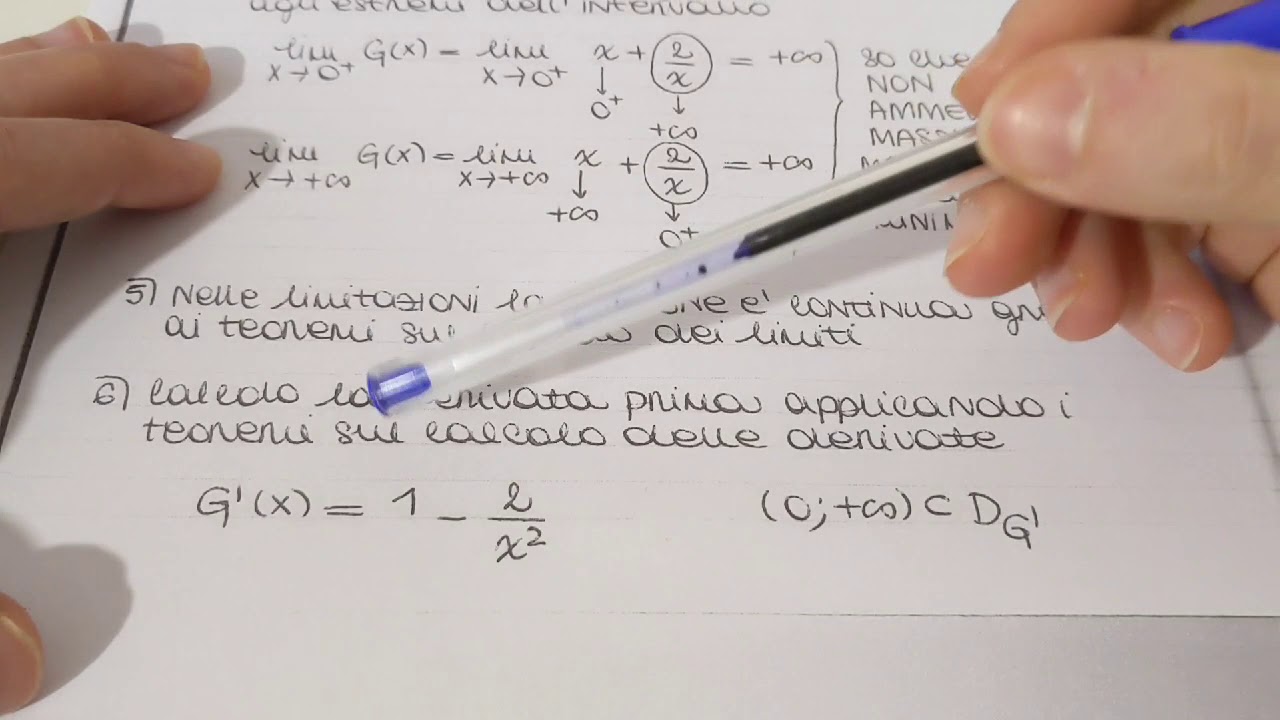 agli estremi dell'intervallo
lim x→0⁺ G(x) = lim x→0⁺ x + 2/x = +∞
0⁺ +∞
lim x→+∞ G(x) = lim x→+∞ x + 2/x = +∞
+∞ 0⁺
so che
NON
5) Nelle limitazioni è continua
ai teoremi dei limiti
6) calcolo la derivata prima applicando i
teoremi sul calcolo delle derivate
G'(x) = 1 - 2/x² (0;+∞) ⊂ D_G'